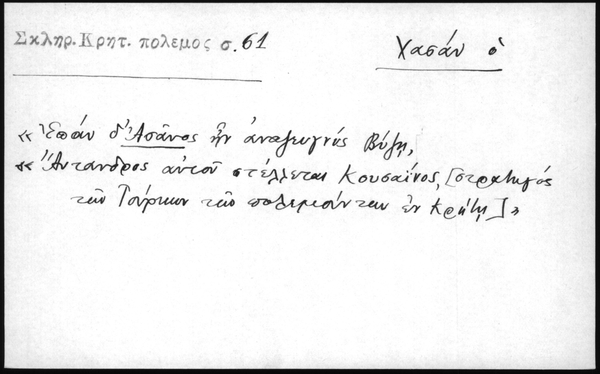 Σκληρ. Κρητ. πολεμος σ. 61
Χασάν ὁ
«Ἐπάν δ' Ἀσᾶνος ἦν ἀναζευγνύς Βύζῃ,
«Ἀντανδρος αὐτοῦ στέλλεται Κουσαΐνος, [στρατηγός
τῶν Τούρκων τῶν πολεμούντων ἐν Κρήτῃ]»